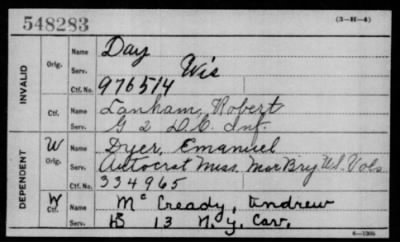 548283
(3-H-4)
INVALID
Orig.
Name
Day
Serv.
Wis
Ctf. No.
976514
Ctf.
Name
Lanham, Robert
Serv.
G 2 D.C. Inf.
DEPENDENT
W
Orig.
Name
Dyer, Emanuel
Serv.
Autocrat Miss. Mar Bry U.S. Vols
Ctf. No.
334965
W
Ctf.
Name
McCready, Andrew
Serv.
13 N.Y. Cav.